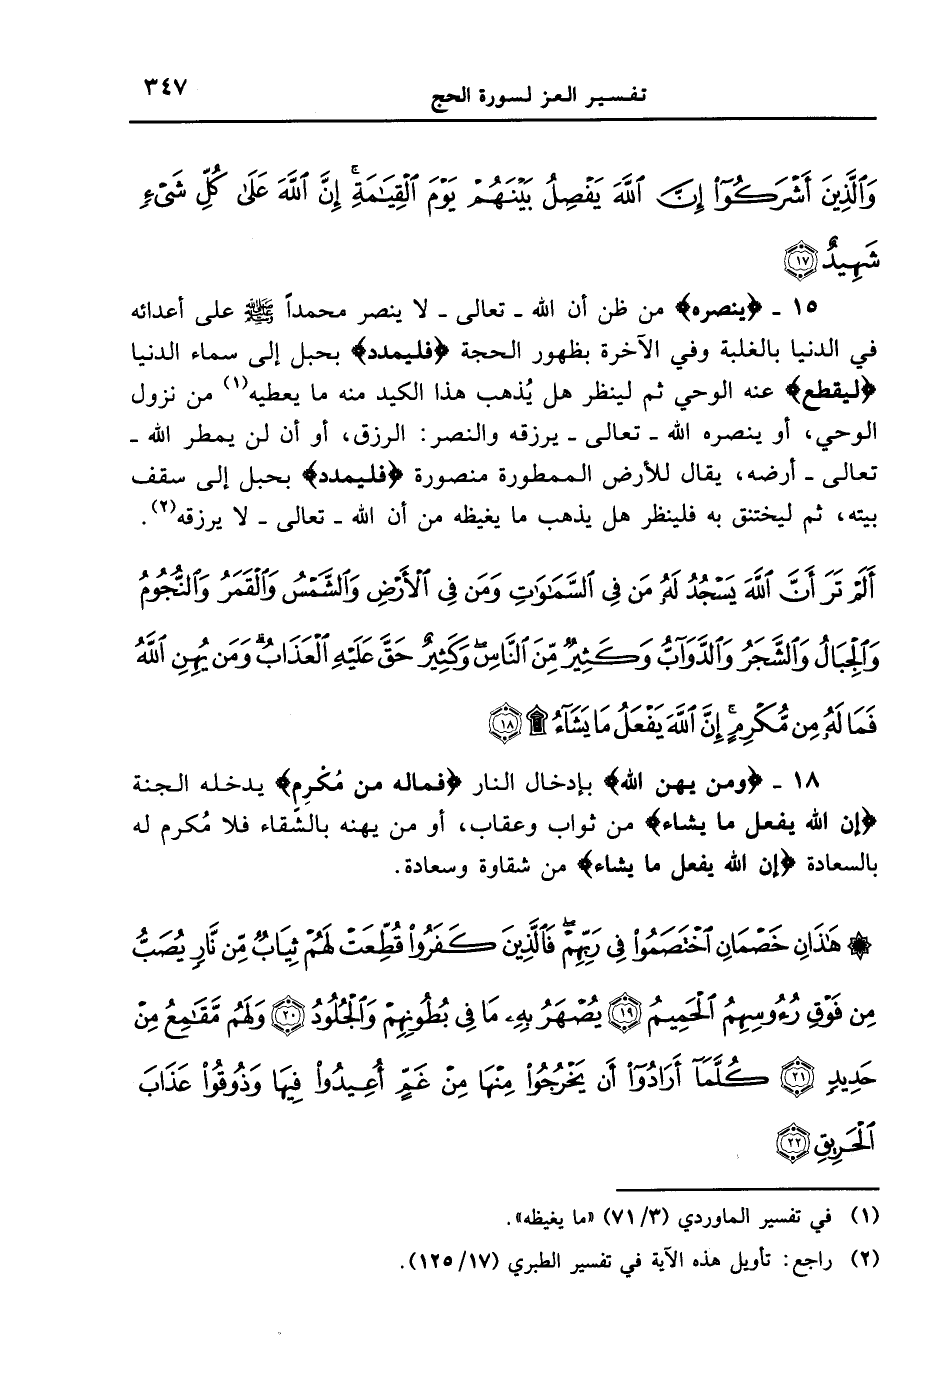 تفسير العز لسورة الحج
٣٤٧
وَٱلَّذِينَ أَشْرَكُوٓا۟ إِنَّ ٱللَّهَ يَفْصِلُ بَيْنَهُمْ يَوْمَ ٱلْقِيَٰمَةِ ۚ إِنَّ ٱللَّهَ عَلَىٰ كُلِّ شَىْءٍ
شَهِيدٌ ﴿١٧﴾
١٥ ـ ﴿ينصره﴾ من ظن أن الله ـ تعالى ـ لا ينصر محمداً ﷺ على أعدائه
في الدنيا بالغلبة وفي الآخرة بظهور الحجة ﴿فليمدد﴾ بحبل إلى سماء الدنيا
﴿ليقطع﴾ عنه الوحي ثم لينظر هل يُذهب هذا الكيد منه ما يعطيه(١) من نزول
الوحي، أو ينصره الله ـ تعالى ـ يرزقه والنصر: الرزق، أو أن لن يمطر الله ـ
تعالى ـ أرضه، يقال للأرض الممطورة منصورة ﴿فليمدد﴾ بحبل إلى سقف
بيته، ثم ليختنق به فلينظر هل يذهب ما يغيظه من أن الله ـ تعالى ـ لا يرزقه(٢).
أَلَمْ تَرَ أَنَّ ٱللَّهَ يَسْجُدُ لَهُۥ مَن فِى ٱلسَّمَٰوَٰتِ وَمَن فِى ٱلْأَرْضِ وَٱلشَّمْسُ وَٱلْقَمَرُ وَٱلنُّجُومُ
وَٱلْجِبَالُ وَٱلشَّجَرُ وَٱلدَّوَآبُّ وَكَثِيرٌ مِّنَ ٱلنَّاسِ ۖ وَكَثِيرٌ حَقَّ عَلَيْهِ ٱلْعَذَابُ ۗ وَمَن يُهِنِ ٱللَّهُ
فَمَا لَهُۥ مِن مُّكْرِمٍ ۚ إِنَّ ٱللَّهَ يَفْعَلُ مَا يَشَآءُ ۩ ﴿١٨﴾
١٨ ـ ﴿ومن يهن الله﴾ بإدخال النار ﴿فماله من مُكْرِم﴾ يدخله الجنة
﴿إن الله يفعل ما يشاء﴾ من ثواب وعقاب، أو من يهنه بالشَّقاء فلا مُكرم له
بالسعادة ﴿إن الله يفعل ما يشاء﴾ من شقاوة وسعادة.
۞ هَٰذَانِ خَصْمَانِ ٱخْتَصَمُوا۟ فِى رَبِّهِمْ ۖ فَٱلَّذِينَ كَفَرُوا۟ قُطِّعَتْ لَهُمْ ثِيَابٌ مِّن نَّارٍ يُصَبُّ
مِن فَوْقِ رُءُوسِهِمُ ٱلْحَمِيمُ ﴿١٩﴾ يُصْهَرُ بِهِۦ مَا فِى بُطُونِهِمْ وَٱلْجُلُودُ ﴿٢٠﴾ وَلَهُم مَّقَٰمِعُ مِنْ
حَدِيدٍ ﴿٢١﴾ كُلَّمَآ أَرَادُوٓا۟ أَن يَخْرُجُوا۟ مِنْهَا مِنْ غَمٍّ أُعِيدُوا۟ فِيهَا وَذُوقُوا۟ عَذَابَ
ٱلْحَرِيقِ ﴿٢٢﴾
(١) في تفسير الماوردي (٣/ ٧١) «ما يغيظه».
(٢) راجع: تأويل هذه الآية في تفسير الطبري (١٧/ ١٢٥).